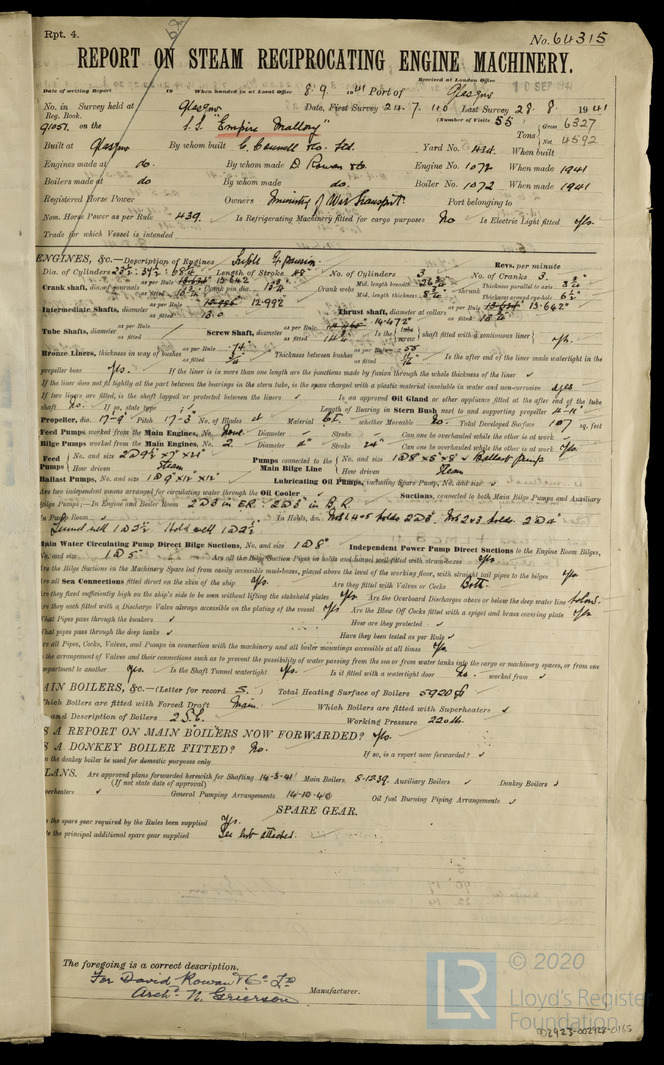 Rpt. 4.
No. 64315
REPORT ON STEAM RECIPROCATING ENGINE MACHINERY.
Received at London Office
10 SEP 1941
Date of writing Report 19 When handed in at Local Office 8. 9. 1941 Port of Glasgow
No. in Survey held at Glasgow Date, First Survey 24. 7. 40 Last Survey 28. 8. 1941
Reg. Book. (Number of Visits 55)
91051. on the S.S. "Empire Mallory" Tons { Gross 6327
Net 4592
Built at Glasgow By whom built C. Connell & Co. Ltd. Yard No. 434. When built
Engines made at do. By whom made D. Rowan & Co. Engine No. 1072 When made 1941
Boilers made at do By whom made do. Boiler No. 1072 When made 1941
Registered Horse Power Owners Ministry of War Transport Port belonging to
Nom. Horse Power as per Rule 439. Is Refrigerating Machinery fitted for cargo purposes No Is Electric Light fitted Yes.
Trade for which Vessel is intended
ENGINES, &c.—Description of Engines Triple Expansion Revs. per minute
Dia. of Cylinders Length of Stroke 48" No. of Cylinders 3 No. of Cranks 3.
Crank shaft, dia. of journals as per Rule 13.642 as fitted Crank pin dia. 13¾" Crank webs Mid. length breadth Mid. length thickness 8½" Thrust Thickness parallel to axis Thickness around eye-hole
Intermediate Shafts, diameter as per Rule 12.992" as fitted 13.0 Thrust shaft, diameter at collars as per Rule 13.642" as fitted
Tube Shafts, diameter as per Rule as fitted Screw Shaft, diameter as per Rule 14.472" as fitted Is the { tube screw } shaft fitted with a continuous liner { Yes.
Bronze Liners, thickness in way of bushes as per Rule .74" as fitted Thickness between bushes as per Rule .55 as fitted Is the after end of the liner made watertight in the
propeller boss Yes. If the liner is in more than one length are the junctions made by fusion through the whole thickness of the liner ✓
If the liner does not fit tightly at the part between the bearings in the stern tube, is the space charged with a plastic material insoluble in water and non-corrosive
If two liners are fitted, is the shaft lapped or protected between the liners ✓ Is an approved Oil Gland or other appliance fitted at the after end of the tube
shaft No. If so, state type ✓ Length of Bearing in Stern Bush next to and supporting propeller 4'-11"
Propeller, dia. 17'-9" Pitch 17'-3" No. of Blades 4 Material C.I. whether Moveable No. Total Developed Surface 107 sq. feet
Feed Pumps worked from the Main Engines, No. None. Diameter Stroke Can one be overhauled while the other is at work ✓
Bilge Pumps worked from the Main Engines, No. 2. Diameter 4" Stroke 24" Can one be overhauled while the other is at work Yes.
Feed Pumps { No. and size 2 @ 9½" x 7" x 21" Pumps connected to the Main Bilge Line { No. and size 1 @ 8" x 8" x 8" ✓ Ballast pump
How driven Steam How driven Steam
Ballast Pumps, No. and size 1 @ 9" x 12" x 12" Lubricating Oil Pumps, including Spare Pump, No. and size ✓
Are two independent means arranged for circulating water through the Oil Cooler ✓ Suctions, connected to both Main Bilge Pumps and Auxiliary
Bilge Pumps;—In Engine and Boiler Room 2 @ 3" in E.R. : 2 @ 3" in B.R.
In Pump Room ✓ In Holds, &c. Nos 1, 4 & 5 holds 2 @ 3". Nos 2 & 3 holds. 2 @ 4"
Tunnel well 1 @ 2½. Hold well 1 @ 2½"
Main Water Circulating Pump Direct Bilge Suctions, No. and size 1 @ 8" Independent Power Pump Direct Suctions to the Engine Room Bilges,
No. and size. 1 @ 5". Are all the Bilge Suction Pipes in holds and tunnel well fitted with strum-boxes Yes.
Are the Bilge Suctions in the Machinery Space led from easily accessible mud-boxes, placed above the level of the working floor, with straight tail pipes to the bilges Yes.
Are all Sea Connections fitted direct on the skin of the ship Yes. Are they fitted with Valves or Cocks Both.
Are they fixed sufficiently high on the ship's side to be seen without lifting the stokehold plates Yes. Are the Overboard Discharges above or below the deep water line below.
Are they each fitted with a Discharge Valve always accessible on the plating of the vessel Yes Are the Blow Off Cocks fitted with a spigot and brass covering plate Yes.
What Pipes pass through the bunkers ✓ How are they protected ✓
What pipes pass through the deep tanks ✓ Have they been tested as per Rule ✓
Are all Pipes, Cocks, Valves, and Pumps in connection with the machinery and all boiler mountings accessible at all times Yes.
the arrangement of Valves and their connections such as to prevent the possibility of water passing from the sea or from water tanks into the cargo or machinery spaces, or from one
compartment to another Yes. Is the Shaft Tunnel watertight Yes. Is it fitted with a watertight door No. worked from ✓
MAIN BOILERS, &c.—(Letter for record S.) Total Heating Surface of Boilers 5920 ⌀
Which Boilers are fitted with Forced Draft Main. Which Boilers are fitted with Superheaters ✓
and Description of Boilers 2 S.E. Working Pressure 220 lb.
IS A REPORT ON MAIN BOILERS NOW FORWARDED? Yes.
IS A DONKEY BOILER FITTED? No. If so, is a report now forwarded? ✓
the donkey boiler be used for domestic purposes only
PLANS. Are approved plans forwarded herewith for Shafting 14-3-41 Main Boilers 8-12-39. Auxiliary Boilers ✓ Donkey Boilers ✓
(If not state date of approval)
Superheaters ✓ General Pumping Arrangements 14-10-40 Oil fuel Burning Piping Arrangements ✓
SPARE GEAR.
Is the spare gear required by the Rules been supplied Yes.
the principal additional spare gear supplied See list attached.
The foregoing is a correct description.
For David Rowan & Co. Ld
Archd. N. Grierson Manufacturer.
LR
© 2020
Lloyd's Register
Foundation
002923-002928-0165